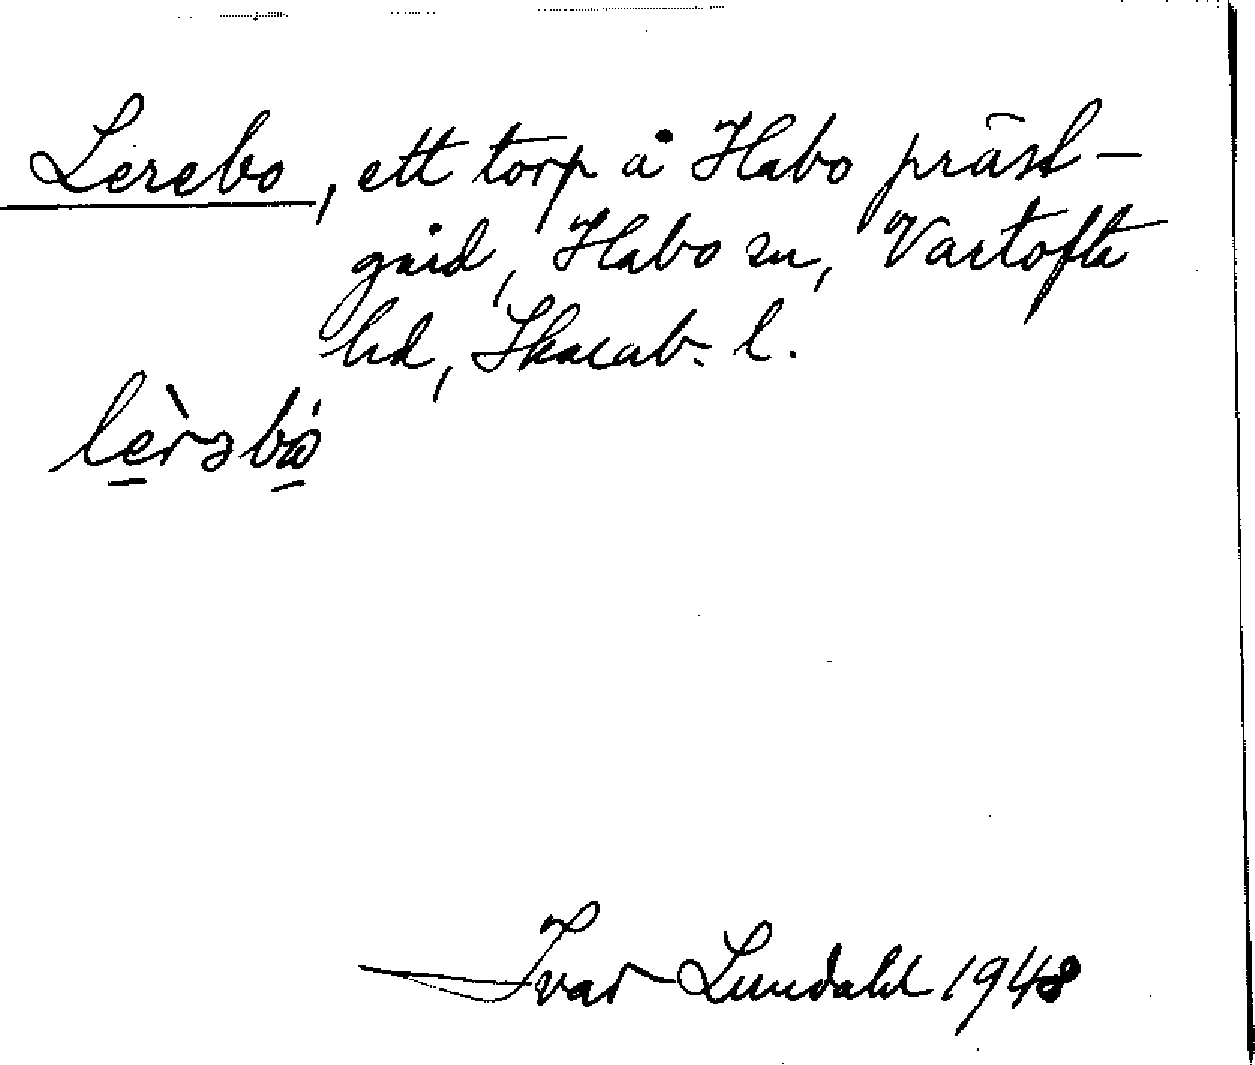 Lerebo, ett torp å Habo präst-
gård, Habo sn, Vartofta
hd, Skarab. l.
lèrəbꙍ̀
Ivar Lundahl 1948